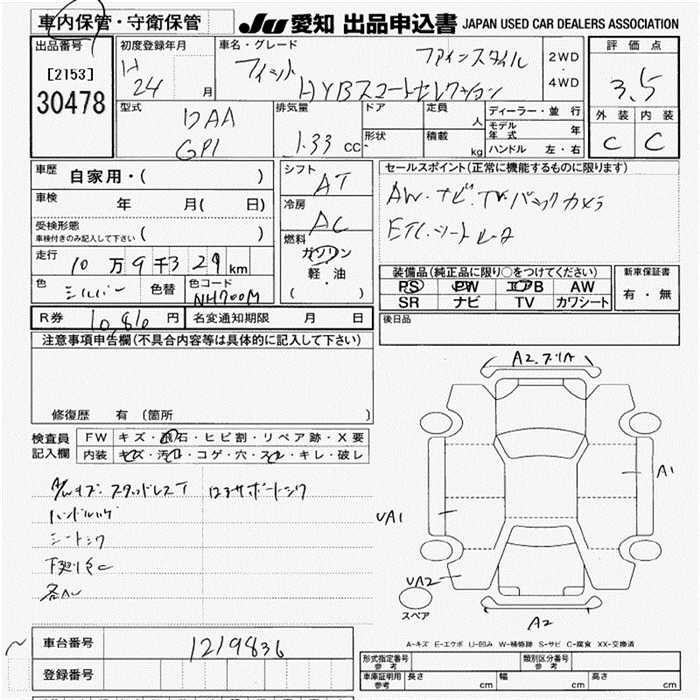 車内保管・守衛保管 JU 愛知 出品申込書 JAPAN USED CAR DEALERS ASSOCIATION
出品番号 初度登録年月 車名・グレード 評価点
[2153] H 24 月 フィット ファインスタイル 2WD・4WD 3.5
30478 HYBスマートセレクション
外装 内装
型式 DAA GP1 排気量 1.33 CC ドア 定員 人 ディーラー・並行
モデル年式 年 C C
形状 積載 kg ハンドル 左・右
車歴 自家用・( ) シフト AT セールスポイント(正常に機能するものに限ります)
車検 年 月( 日) 冷房 AC AW・ナビ・TV バックカメラ
受検形態 車検付きのみ記入して下さい ( ) ETC.シート
燃料 ガソリン 軽・油 ( )
走行 10万9千329km 装備品(純正品に限り○をつけてください) 新車保証書
色 シルバー 色替 色コード NH700M PS PW エアB AW 有・無
SR ナビ TV カワシート
R券 10,810円 名変通知期限 月 日 後日品
注意事項申告欄(不具合内容等は具体的に記入して下さい)
A2.ワリA
修復歴 有 (箇所
検査員記入欄 FW キズ・飛石・ヒビ割・リペア跡・X要
内装 キズ・汚れ・コゲ・穴・スレ・キレ・破レ
A/Wキズ スタッドレスT
ハンドルハゲ
シートシワ
下廻り
A1
UA1
UA2
スペア
A2
A-キズ E-エクボ U-凹み W-補修跡 S-サビ C-腐食 XX-交換済
車台番号 1219836
登録番号
形式指定番号 参考 類別区分番号 参考
車庫証明用 参考 長さ cm 幅 cm 高さ cm